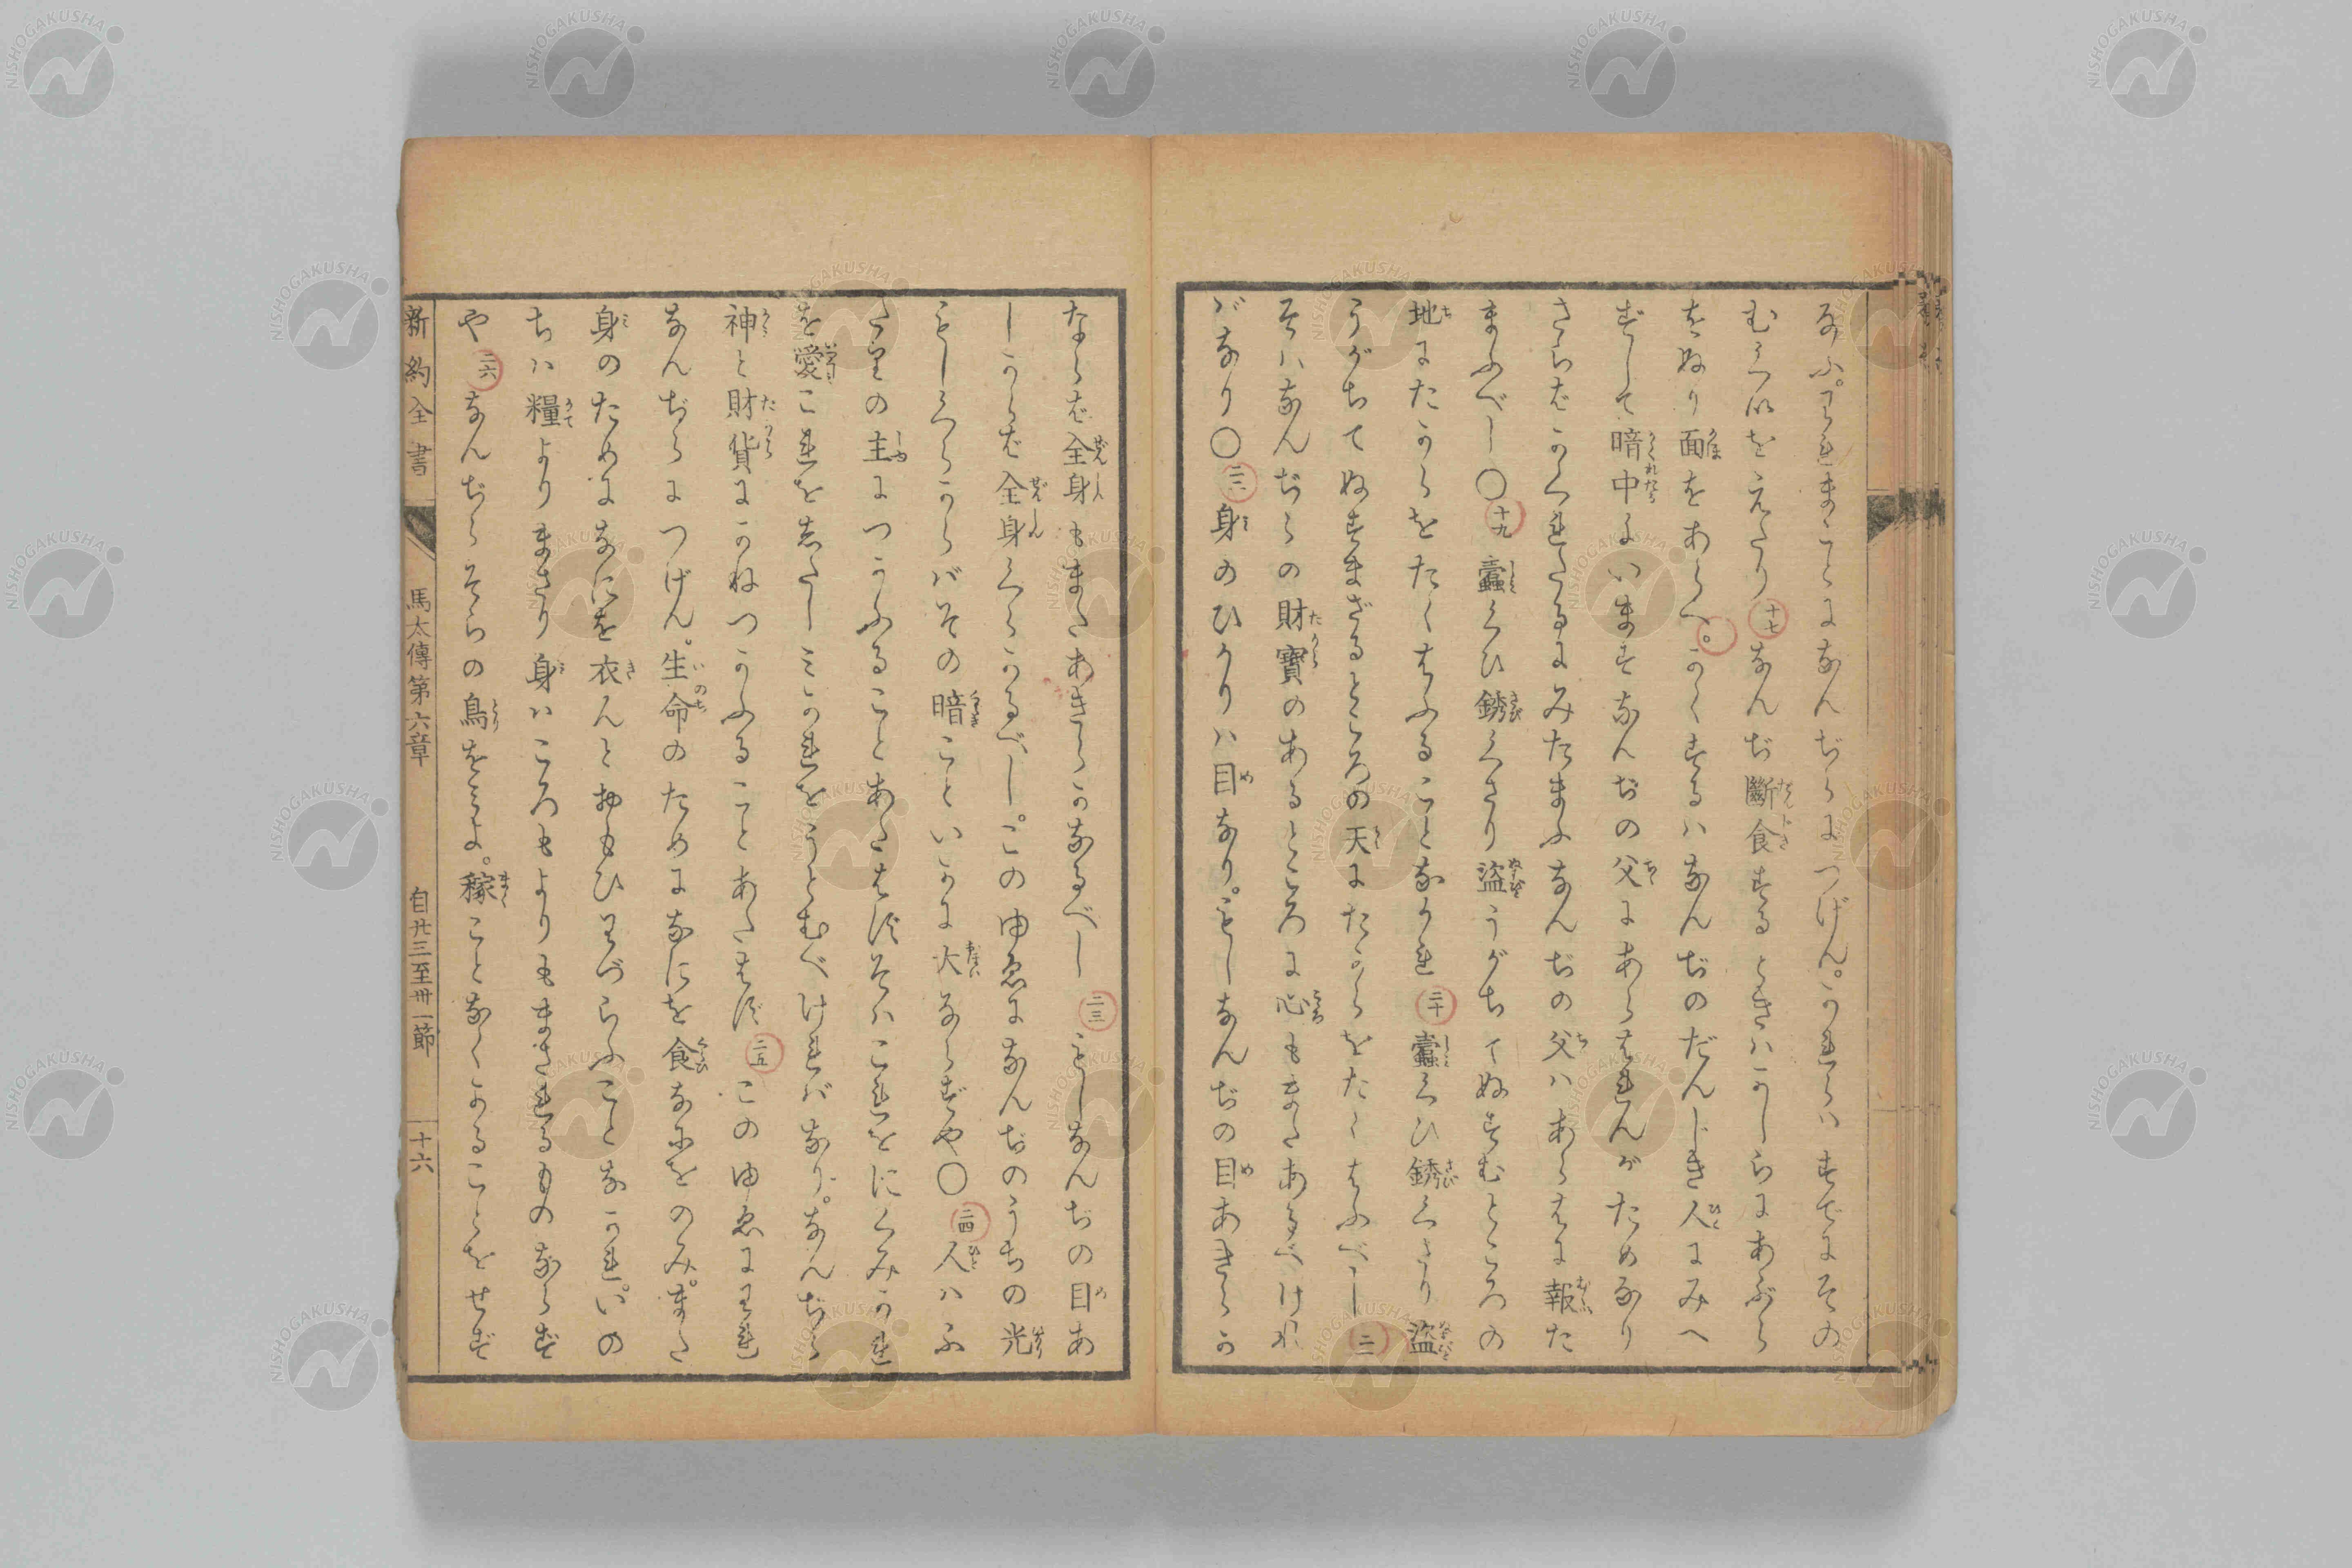 なふ。われまことになんぢらにつげん。かれらハすでにその
むくいをえたり 十七 なんぢ斷食するときハかしらにあぶら
をぬり面をあらへ。かくするハなんぢのだんじき人にみへ
ずして暗中にいますなんぢの父にあらはれんがためなり
さらばかくれたるにみたまふなんぢの父ハあらはに報た
まふべし〇 十九 蠧くひ銹くさり盜うがちてぬすむところの
地にたからをたくはふることなかれ 二十 蠧くひ銹くさり盜
うがちてぬすまざるところの天にたからをたくはふべし 二一
そハなんぢらの財寶のあるところに心もまたあるべけれ
バなり〇 二二 身のひかりハ目なり。もしなんぢの目あきらか
ならば全身もまたあきらかなるべし 二三 もしなんぢの目あ
しからば全身くらかるべし。このゆゑになんぢのうちの光
もしくらからバその暗こといかに大ならずや〇 二四 人ハふ
たりの主につかふることあたはずそハこれをにくみかれ
を愛これをしたしミかれをうとむべけれバなり。なんぢら
神と財貨にかねつかふることあたはず 二五 このゆゑにわれ
なんぢらにつげん。生命のためになにを食なにをのみ。また
身のためになにを衣んとおもひわづらふことなかれ。いの
ちハ糧よりまさり身ハころもよりもまされるものならず
や 二六 なんぢらそらの鳥をミよ。稼ことなくかることをせず
新約全書 馬太傳第六章 自廿三至卅一節 十六
NISHOGAKUSHA